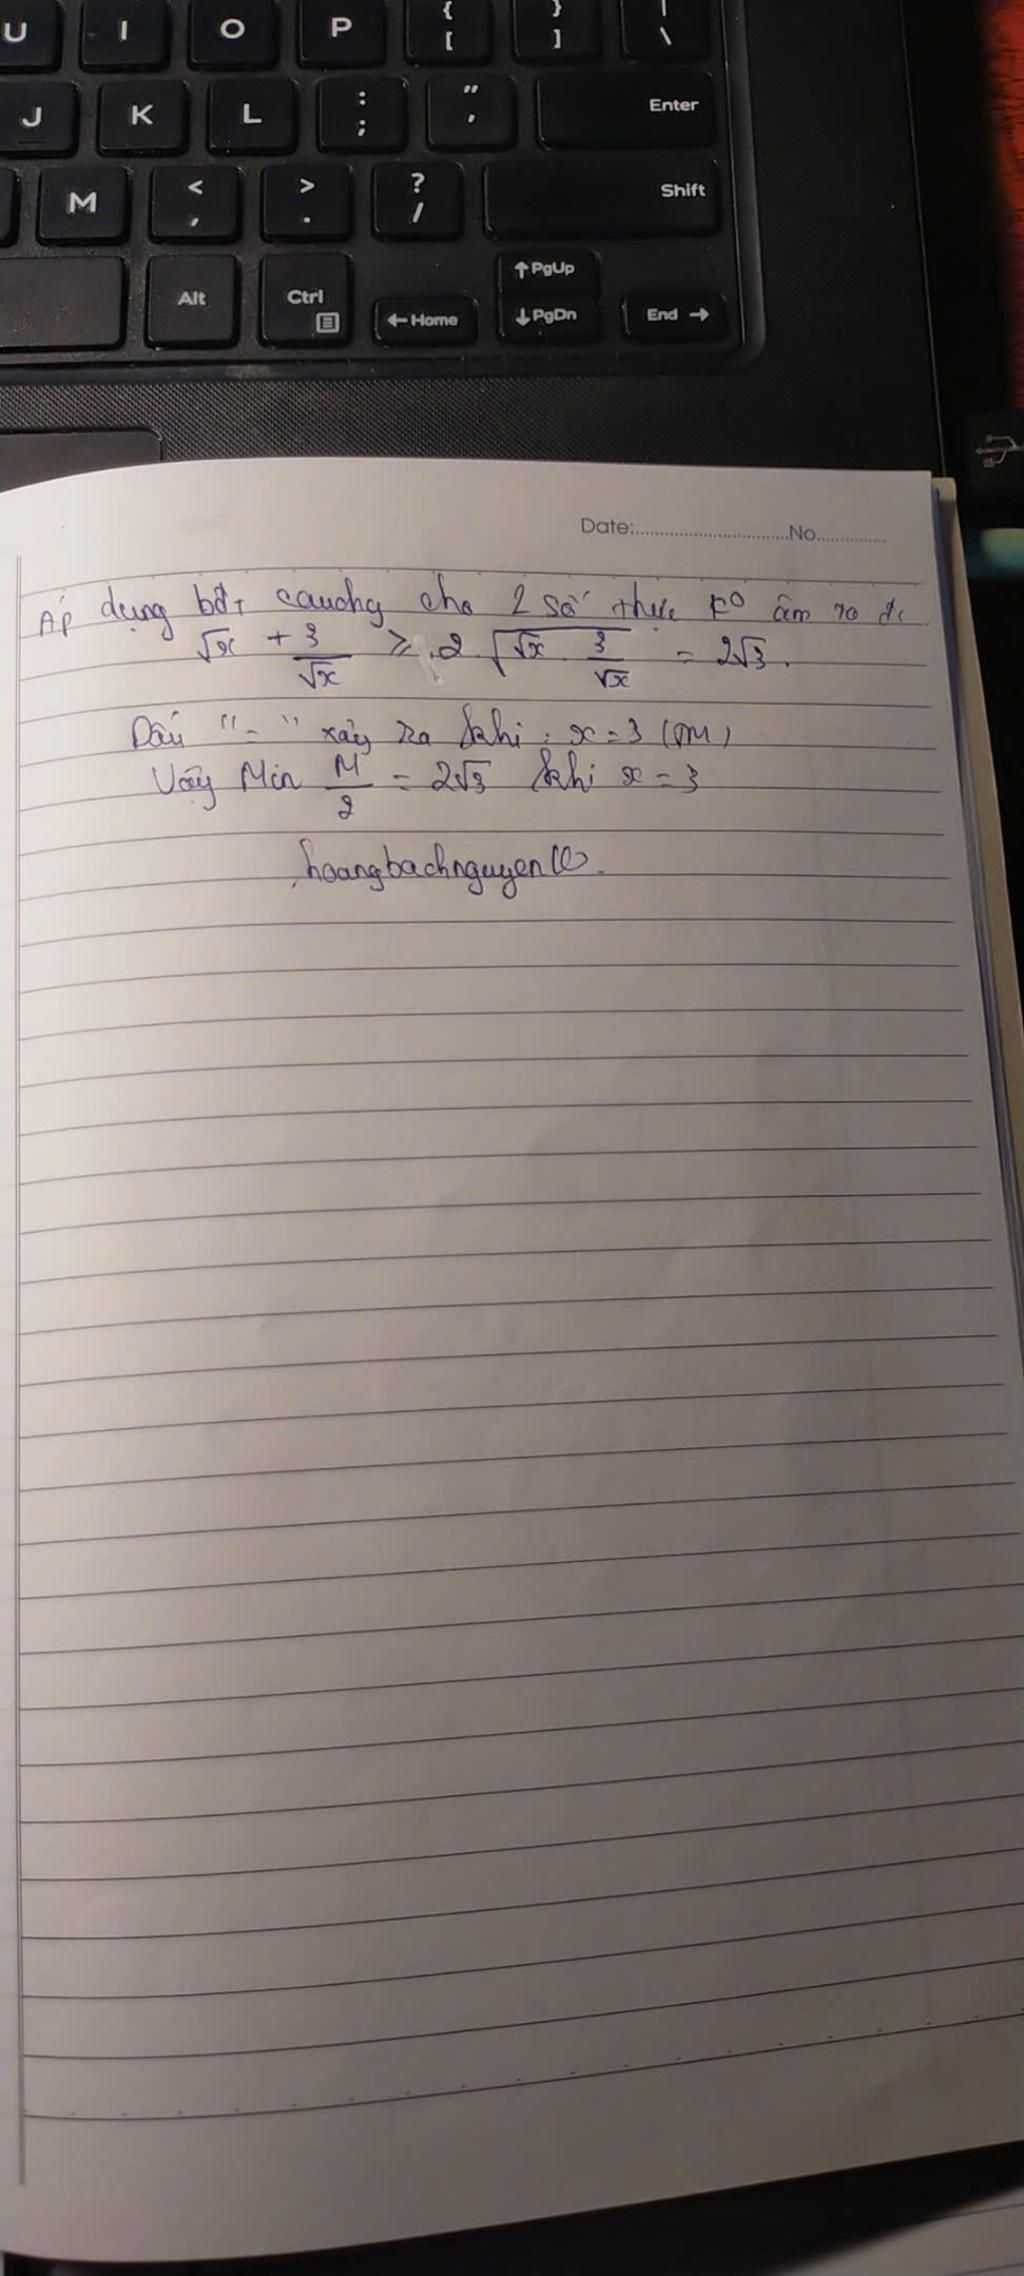 U I O P { [ } ] | \
J K L : ; " ' Enter
M < , > . ? / Shift
Alt Ctrl ←Home ↑PgUp ↓PgDn End →
Date:..............................No..............
Áp dụng bđt cauchy cho 2 số thực kº âm ta đc
√x + 3/√x ≥ 2.√(√x . 3/√x) = 2√3.
Dấu "=" xảy ra khi: x = 3 (TM)
Vậy Min M/2 = 2√3 khi x = 3
hoangbachnguyen